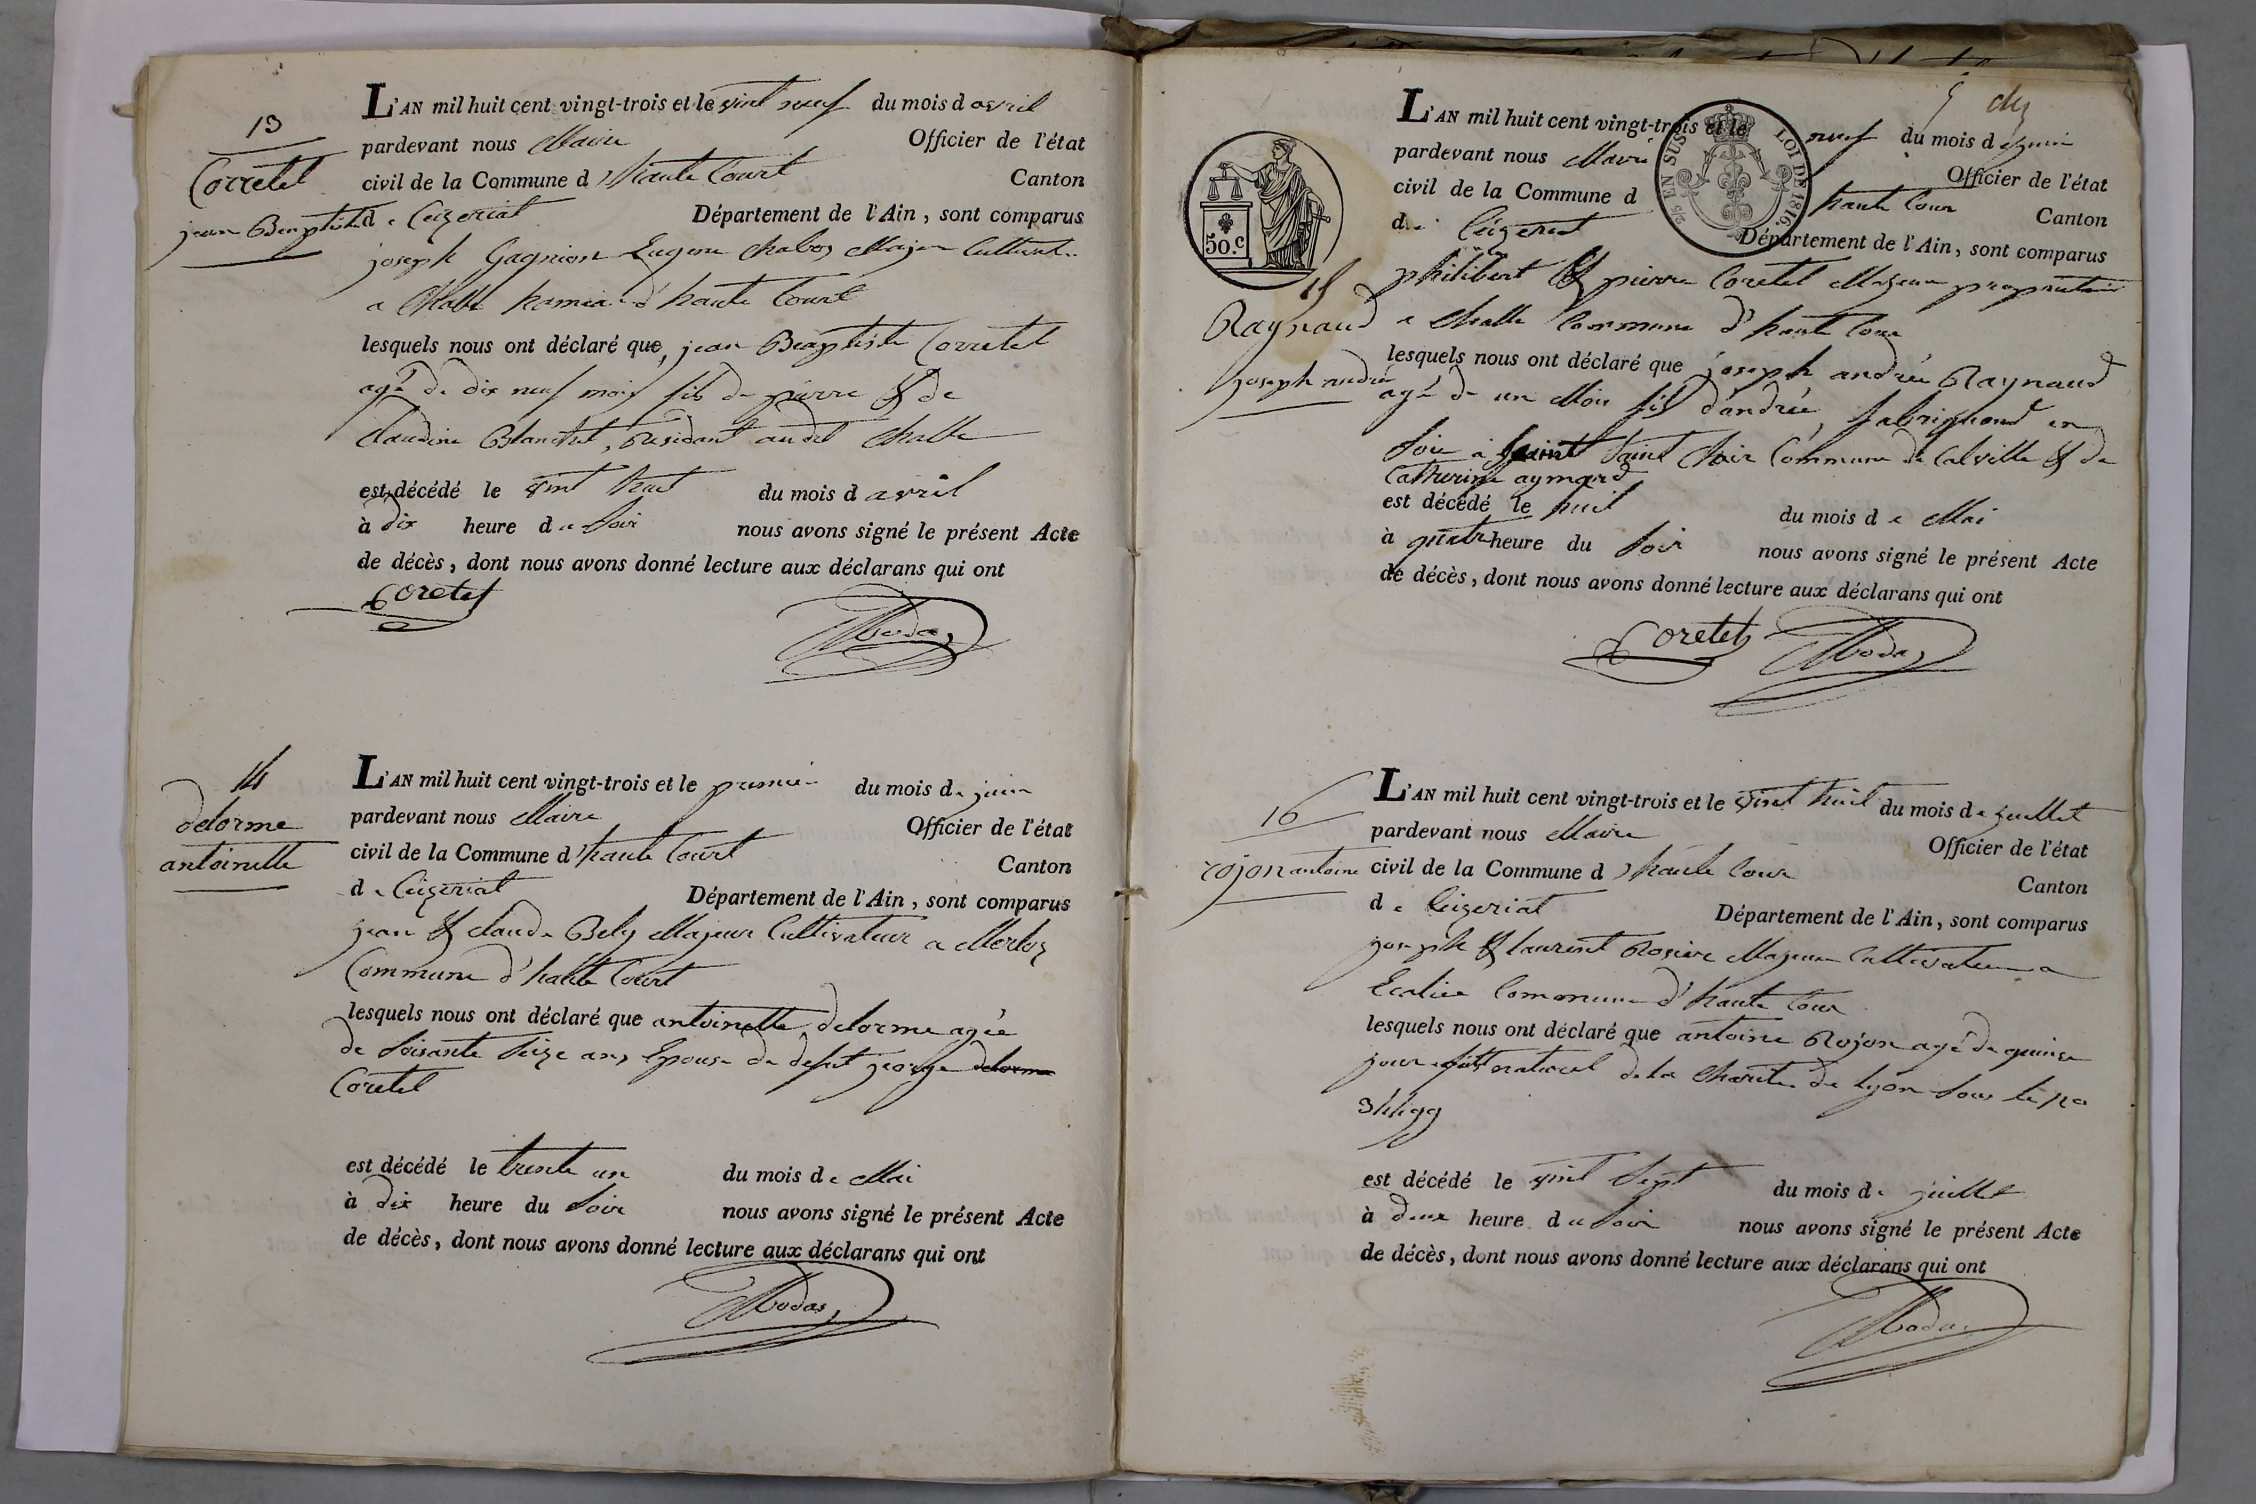 13
Corretet
jean Baptiste
L'AN mil huit cent vingt-trois et le vint neuf du mois d avril
pardevant nous Maire Officier de l'état
civil de la Commune d haute Court Canton
de Ceizeriat Département de l'Ain, sont comparus
joseph Gagnion Eugene Majeur
a Challe d'haute Court
lesquels nous ont déclaré que jean Baptiste Corretet
agé de dix neuf mois fils de pierre & de
Claudine Blanchet, Residant audit Challe
est décédé le vint huit du mois d avril
à dix heure du Soir nous avons signé le présent Acte
de décès, dont nous avons donné lecture aux déclarans qui ont
Coretet
Rodas
14
delorme
antoinette
L'AN mil huit cent vingt-trois et le premier du mois de juin
pardevant nous Maire Officier de l'état
civil de la Commune d'haute Court Canton
de Ceizeriat Département de l'Ain, sont comparus
jean & claude Bely Majeur Cultivateur a Merloz
Commune d'haute Court
lesquels nous ont déclaré que antoinette delorme agée
de Soisante Seize ans Epouse de defut george delorme
Coretet
est décédé le trente un du mois de Mai
à dix heure du Soir nous avons signé le présent Acte
de décès, dont nous avons donné lecture aux déclarans qui ont
Rodas
50.c
EN SUS LOI DE 1816
15
Raynaud
joseph andré
L'AN mil huit cent vingt-trois et le neuf du mois de
pardevant nous Maire Officier de l'état
civil de la Commune d haute Cour Canton
de Ceizeriat Département de l'Ain, sont comparus
philibert & pierre Coretet Majeur propriétaire
a Challe Commune d'haute Cour
lesquels nous ont déclaré que joseph andrée Raynaud
agé de un Moi fils d'andrée, fabriquand en
Soie à Saint Saint Clair Commune de Calville & de
Catherine aymard
est décédé le huit du mois de Mai
à quatre heure du Soir nous avons signé le présent Acte
de décès, dont nous avons donné lecture aux déclarans qui ont
Coretet
Rodas
16
rojon antoine
L'AN mil huit cent vingt-trois et le vint huit du mois de juillet
pardevant nous Maire Officier de l'état
civil de la Commune d haute Cour Canton
de Ceizeriat Département de l'Ain, sont comparus
joseph & laurent Rosier Majeur Cultivateur a
Commune d'haute Cour
lesquels nous ont déclaré que antoine Rojon agé de quinse
jour naturel de la Charité de Lyon Sous le no
est décédé le vint Sept du mois de juillet
à deux heure du Soir nous avons signé le présent Acte
de décès, dont nous avons donné lecture aux déclarans qui ont
Rodas